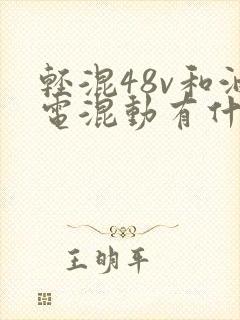 輕混48v和油
電混動有什
王明平